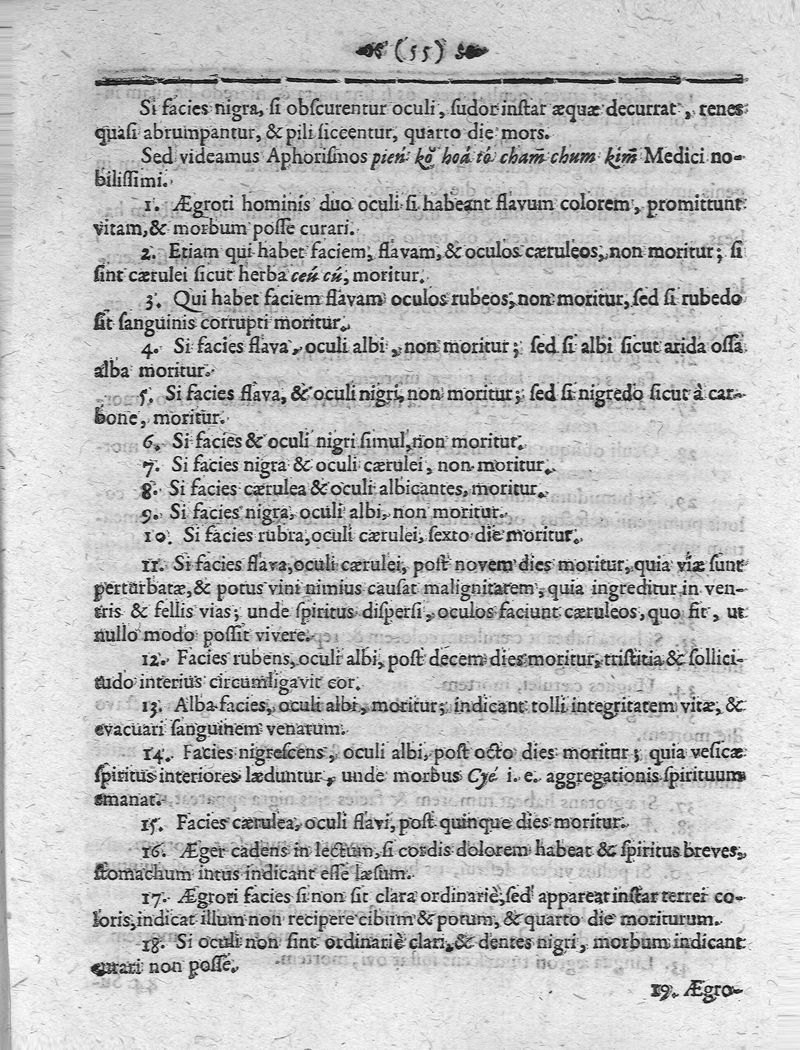 (55)
Si facies nigra, si obscurentur oculi, sudor instar æquæ decurrat, renes
quasi abrumpantur, & pili siccentur, quarto die mors.
Sed videamus Aphorismos pień kǒ hoá tó cham̄ chum kim̄ Medici no-
bilissimi.
1. Ægroti hominis duo oculi si habeant flavum colorem, promittunt
vitam, & morbum posse curari.
2. Etiam qui habet faciem, flavam, & oculos cæruleos, non moritur; si
sint cærulei sicut herba ceú cú, moritur.
3. Qui habet faciem flavam oculos rubeos, non moritur, sed si rubedo
sit sanguinis corrupti moritur.
4. Si facies flava, oculi albi, non moritur; sed si albi sicut arida ossa
alba moritur.
5. Si facies flava, & oculi nigri, non moritur; sed si nigredo sicut à car-
bone, moritur.
6. Si facies & oculi nigri simul, non moritur.
7. Si facies nigra & oculi cærulei, non moritur.
8. Si facies cærulea & oculi albicantes, moritur.
9. Si facies nigra, oculi albi, non moritur.
10. Si facies rubra, oculi cærulei, sexto die moritur.
11. Si facies flava, oculi cærulei, post novem dies moritur, quia viæ sunt
perturbatæ, & potus vini nimius causat malignitatem, quia ingreditur in ven-
tris & fellis vias; unde spiritus dispersi, oculos faciunt cæruleos, quo fit, ut
nullo modo possit vivere.
12. Facies rubens, oculi albi, post decem dies moritur, tristitia & sollici-
tudo interius circumligavit cor.
13. Alba facies, oculi albi, moritur; indicant tolli integritatem vitæ, &
evacuari sanguinem venarum.
14. Facies nigrescens, oculi albi, post octo dies moritur; quia vesicæ
spiritus interiores læduntur, unde morbus Cyé i. e. aggregationis spirituum
emanat.
15. Facies cærulea, oculi flavi, post quinque dies moritur.
16. Æger cadens in lectum, si cordis dolorem habeat & spiritus breves,
stomachum intus indicant esse læsum.
17. Ægroti facies si non sit clara ordinariè, sed appareat instar terrei co-
loris, indicat illum non recipere cibum & potum, & quarto die moriturum.
18. Si oculi non sint ordinariè clari, & dentes nigri, morbum indicant
curari non posse.
19. Ægro-